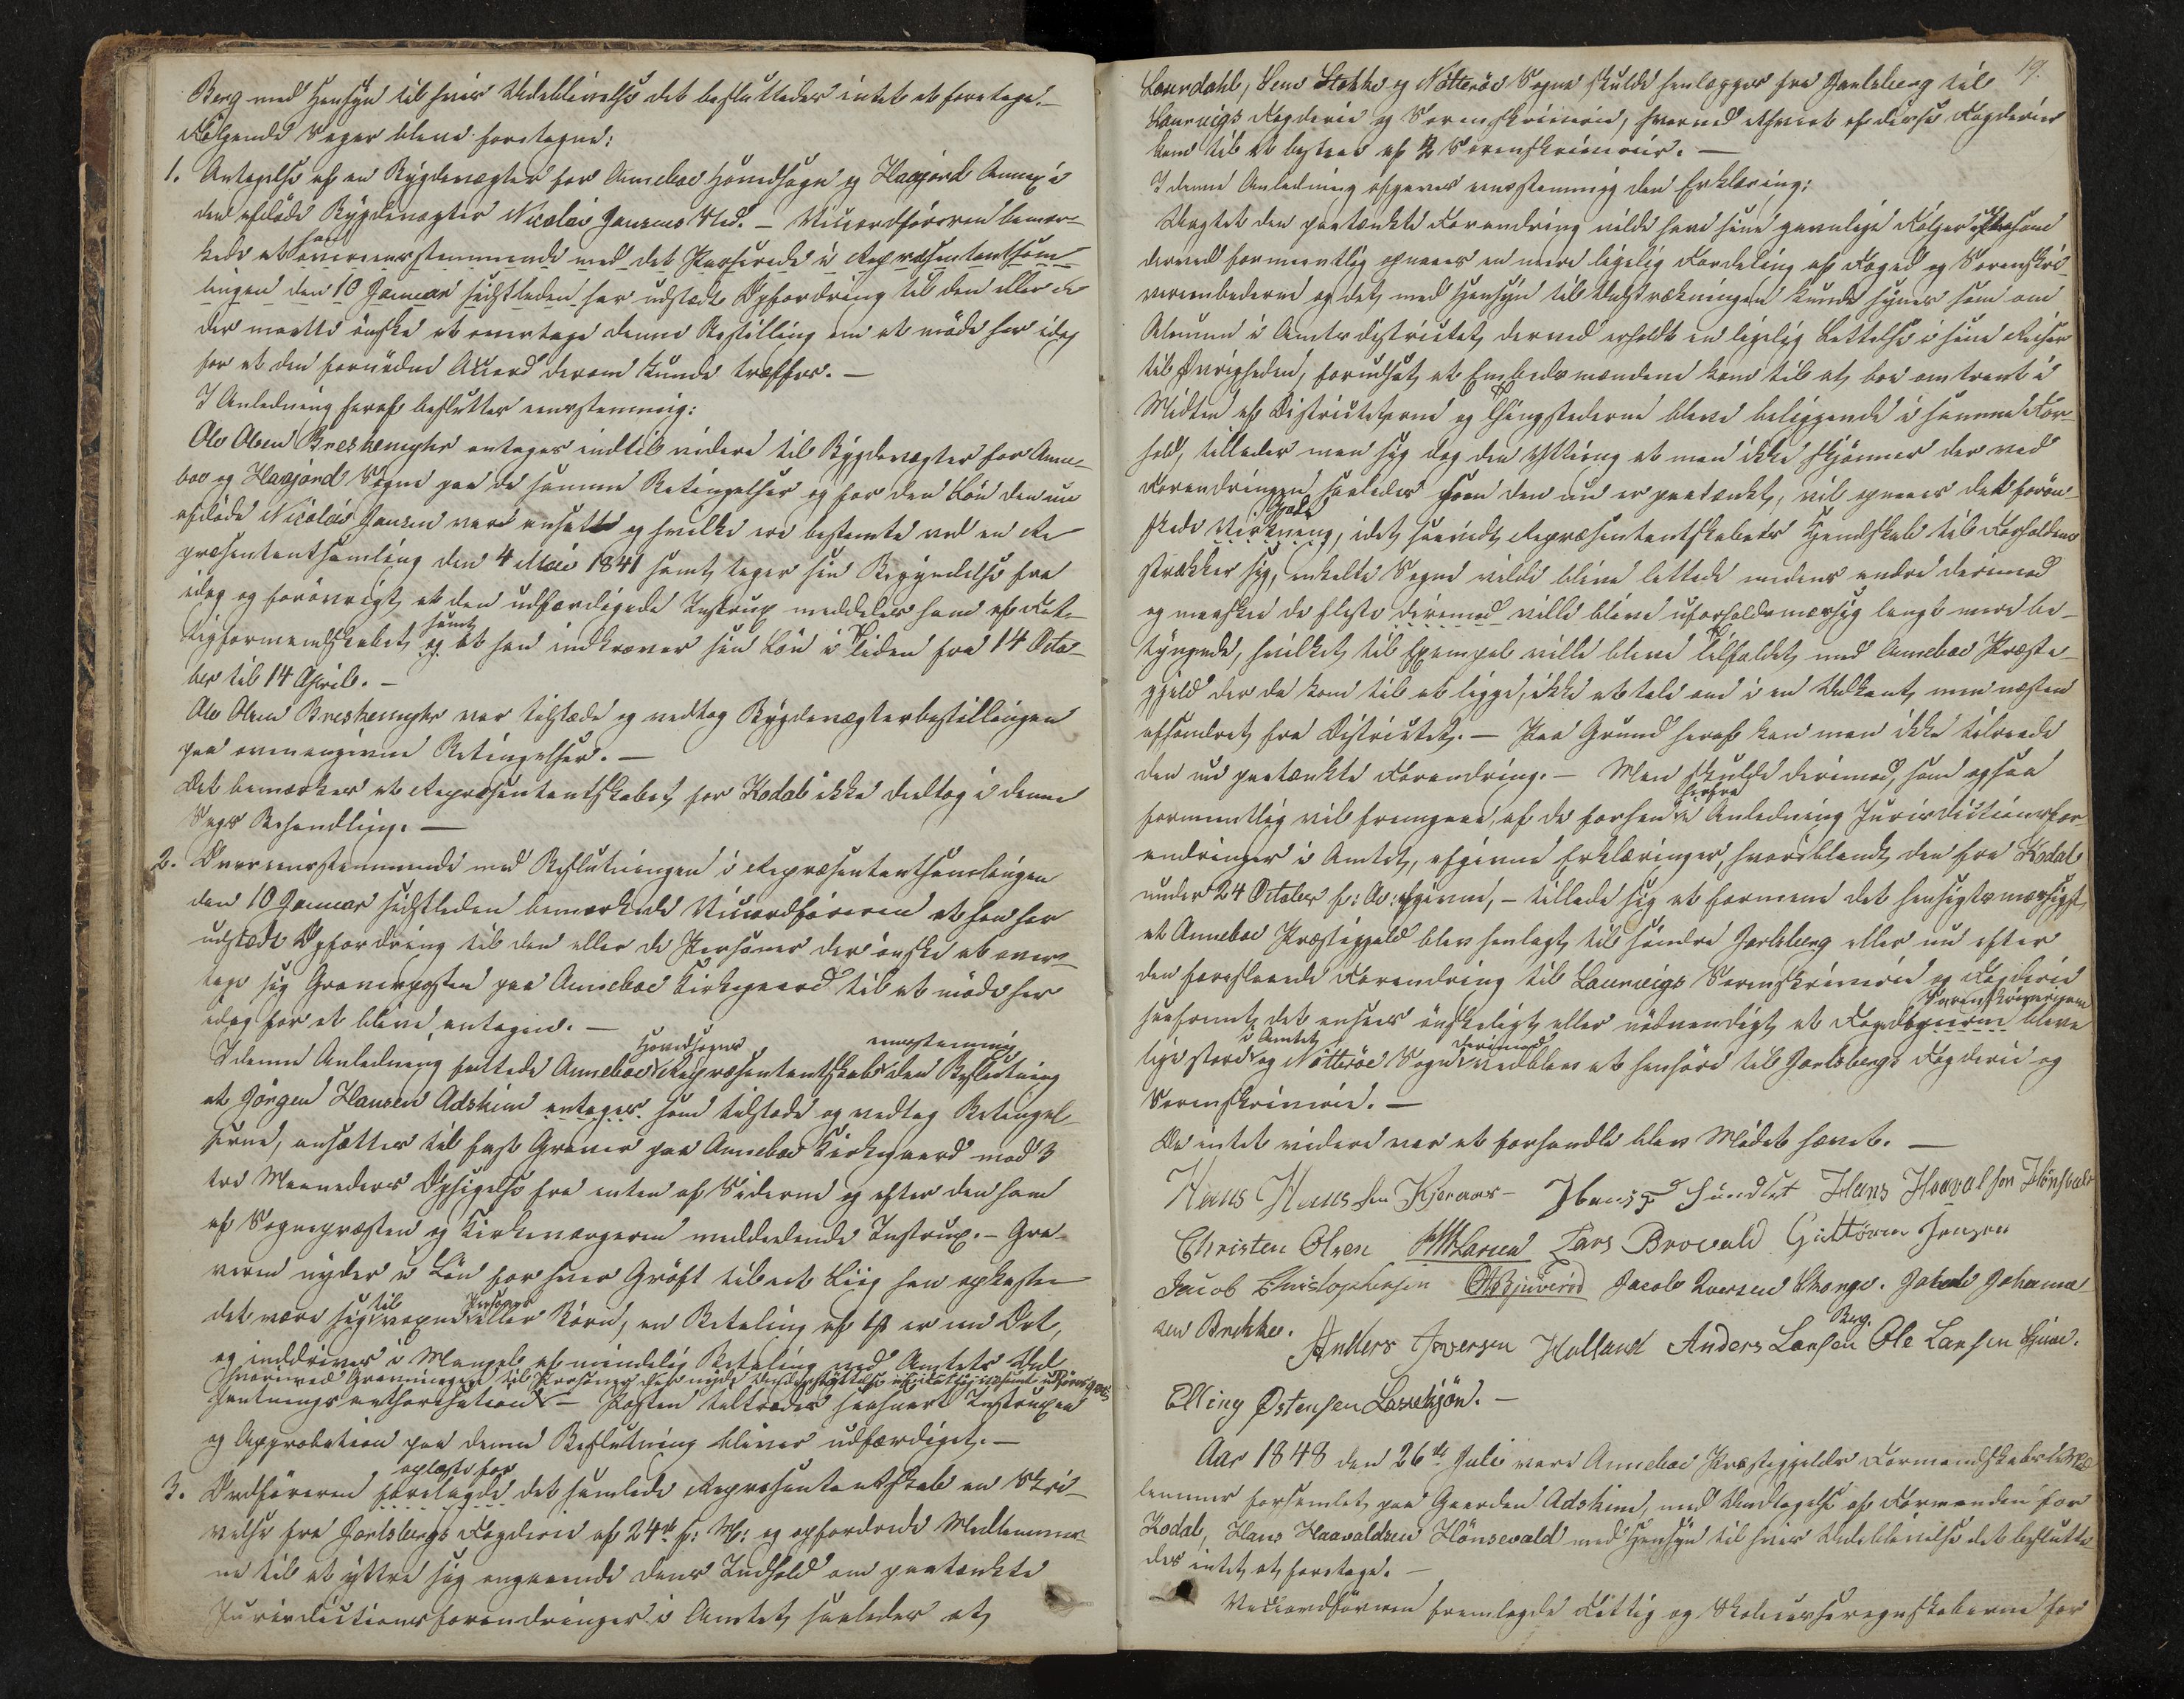 Berg med Hensyn til hvis Udeblivelse det besluttedes intet at foretage. -
Følgende Sager bleve foretagne:
1. Antagelse af en Bygdevægter for Anneboe Hovedsogn og Haasjord Annex i
den afdøde Bygdevægter Nicolai Jansens Sted. - Viceordføreren bemær-
kede at han overeensstemmende med det Passerede i Repræsentantsam-
lingen den 10 Januar sidstleden har udstædt Opfordring til den eller de
der maatte önske at overtage denne Bestilling om at møde her idag
for at den fornødne Accord derom kunde træffes. -
I Anledning heraf besluttes eensstemmig:
Ole Olsen Breskemyhr antages indtil videre til Bygdevægter for Anne-
boe og Haasjord Sogne paa de samme Betingelser og for den Løn den nu
afdøde Nicolai Jansen var ansatt og hvilke ere bestemte ved en Re-
præsentantsamling den 4 Mai 1841 samt tager sin Begyndelse fra
idag og forøvrigt at den udfærdigede Instrux meddeles ham af Fat-
tigformandskabet samt at han indkræver sin Løn i Tiden fra 14 Octo-
ber til 14 April. -
Ole Olsen Breskemyhr var tilstæde og vedtog Bygdevægterbestillingen
paa ovenangivne Betingelser. -
Det bemærkes at Repræsentantskabet for Kodal ikke deeltog i denne
Sags Behandling. -
2. Overeensstemmende med Beslutningen i Repræsentantsamlingen
den 10 Januar sidstleden bemærkede Viceordføreren at han har
udstædt Opfordring til den eller de Personer der ønske at over-
tage sig Graverposten paa Anneboe Kirkegaard til at møde her
idag for at blive antagen. -
I denne Anledning fattede Anneboe Hovedsogns Repræsentantskab eensstemmig den Beslutning
at Jörgen Hansen Adskim antages som tilstæde og vedtog Betingel-
serne, ansættes til fast Graver paa Anneboe Kirkegaard mod 3
tre Maaneders Opsigelse fra enten af Siderne og efter den ham
af Sognepræsten og Kirkeværgerne meddeelende Instrux. - Gra-
veren nyder i Løn for hver Grøft til et Liig han opkaster
det være sig til voxne Personer eller Börn, en Betaling af er en Ort,
og inddrives i Mangel af mindelig Betaling ved Amtets Ud
hvorimod Gravningen til Personer som nyde Understøttelse af Fattigvæsenet udføres gratis
pantningsauthorisation - Posten tiltrædes saasnart Instruxen
og Approbation paa denne Beslutning bliver udfærdiget. -
3. Ordføreren oplæste for forelagde det samlede Repræsentantskab en Skri-
velse fra Jarlsbergs Fogderie af 24de f: M: og opfordrede Medlemmer-
ne til at yttre sig angaaende dens Indhold om paatænkte
Jurisdictionsforandringer i Amtet, saaledes at
19.
Laurdahl, Sems Stokke og Nötteröe Sogne skulde henlægges fra Jarlsberg til
Laurvigs Fogderie og Sorenskriverie, hvorved ethvert af disse Fogderier
kom til at bestaae af 2 Sorenskriverier. -
I denne Anledning afgaves eensstemmig den Erklæring:
Uagtet den paatænkte Forandring vilde have sine gavnlige Følger eftersom
derved formeentlig opnaaes en mere ligelig Fordeling af Foged og Sorenskri-
verembederne og det med Hensyn til Udstrækningen kunde synes som om
Almuen i Amtsdistrictet, derved erholdt en ligelig Lettelse i sine Reiser
til Øvrigheden, forudsat, at Embedsmændene kom til at boe omtrent i
Midten af Districterne og Thingstederne bleve beliggende i samme For-
hold, tillader man sig dog den Yttring at man ikke skjønner der ved
Forandringen saaledes som den nu er paatænkt, vil opnaaes det forön-
skede Virkning, idet, saavidt Repræsentantskabets Kjendskab til Forholdene
strækker sig, enkelte Sogne vilde blive lettede medens andre derimod
og maaskee de fleste derimod ville blive uforholdsmæssig langt mere be-
tyngede, hvilket til Exempel ville blive Tilfældet med Anneboe Præste-
gjeld der da kom til at ligge, ikke at tale om i en Udkant, men næsten
afsondret fra Districtet. - Paa Grund heraf kan man ikke tilraade
den nu paatænkte Forandring. - Men skulde derimod, som ogsaa
formeentlig vil fremgaae, af de forhen herfra i Anledning Jurisdictionsfor-
andringer i Amtet, afgivne Erklæringer, hvoriblandt den fra Kodal
under 24 October f: A: afgivne, - tillade sig at formene det hensigtsmæssigst,
at Anneboe Præstegjeld blev henlagt til söndre Jarlsberg eller nu efter
den foreslaaede Forandring til Laurvigs Sorenskriverie og Fogderie
saafremt det ansees önskeligt eller nødvendigt at Fogderierne Sorenskriverierne bleve
lige store i Amtet og Nötteröe Sogn derimod vedblev at henhöre til Jarlsbergs Fogderie og
Sorenskriverie. -
Da intet videre var at forhandle blev Mödet hævet. -
Hans Hansen Kjeraas - Hans Haavalsen Hönsvale
Christen Olsen Larsen Lars Brovald Guttorm Jensen
Jacob Christophersen OABjuveröd Jacob Iversen Skorge. Jakob Johanne
sen Brekke. Anders Iversen Holland Anders Larsen Berg. Ole Larsen
Elling Østensen Lasskjön. -
Aar 1848 den 26de Juli vare Anneboe Præstegjelds Formandskabs Med-
lemmer forsamlet, paa Gaarden Adskim, med Undtagelse af Formanden for
Kodal, Hans Haavaldsen Hönsevald med Hensyn til hvis Udeblivelse det beslutte
des intet at foretage. -
Viceordføreren fremlagde Fattig og Skolecasseregnskaberne for